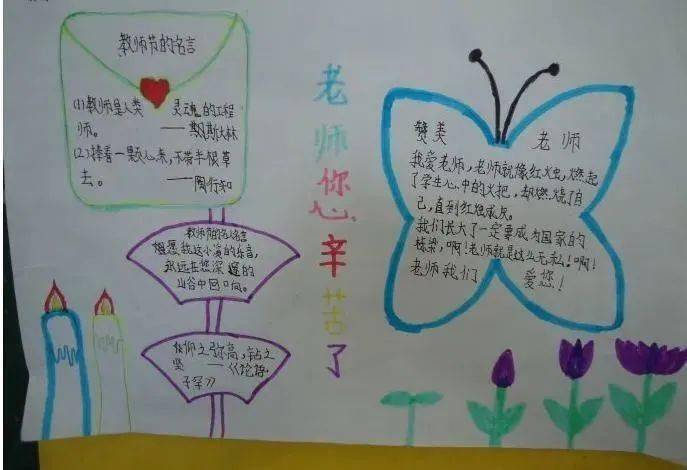 教师节的名言
(1)教师是人类 灵魂的工程
师。 ——斯大林
(2)捧着一颗心来,不带半根草
去。 ——陶行知
教师节的名人名言
想愿我这小溪的乐言,
永远在您深邃的
山谷中回响。
仰之弥高,钻之
坚 ——《论语·
子罕》
老师你心辛苦了
赞美 老师
我爱老师,老师就像红火虫,燃起
了学生心中的火把,却燃烧了自
己,直到红烛成灰。
我们长大了一定要成为国家的
栋梁,啊!老师就是这么无私!啊!
老师我们 爱您!